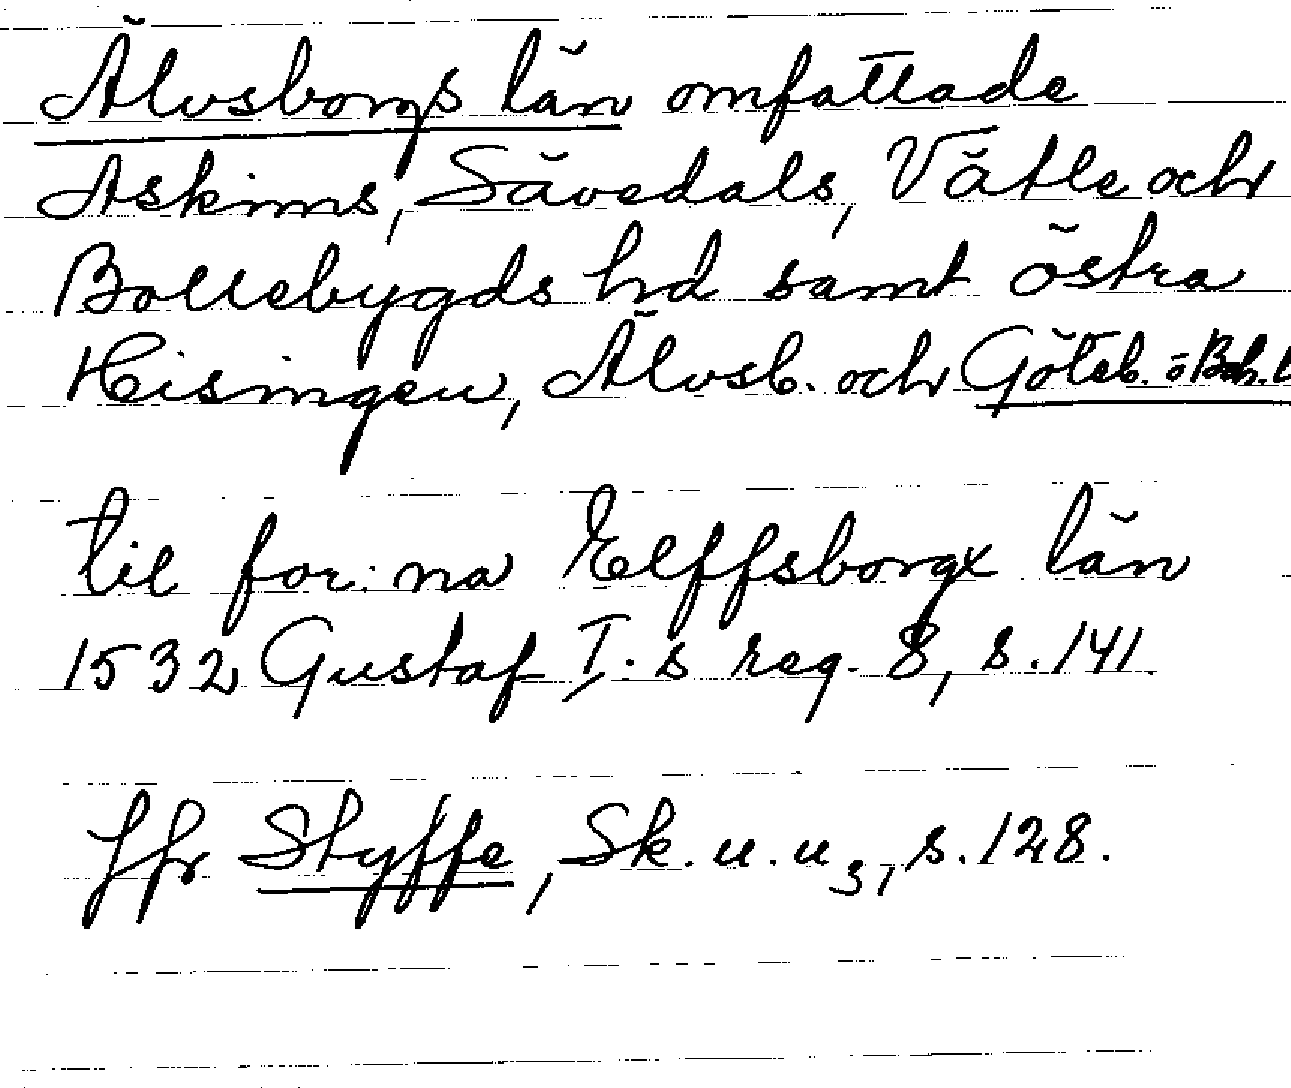 Älvsborgs län omfattade
Askims, Sävedals, Vätle och
Bollebygds hd samt östra
Hisingen, Älvsb. och Göteb. o Boh. l
til for:na Elffsborgx län
1532 Gustaf I:s reg. 8, s. 141
Jfr Styffe, Sk. u. u3, s. 128.